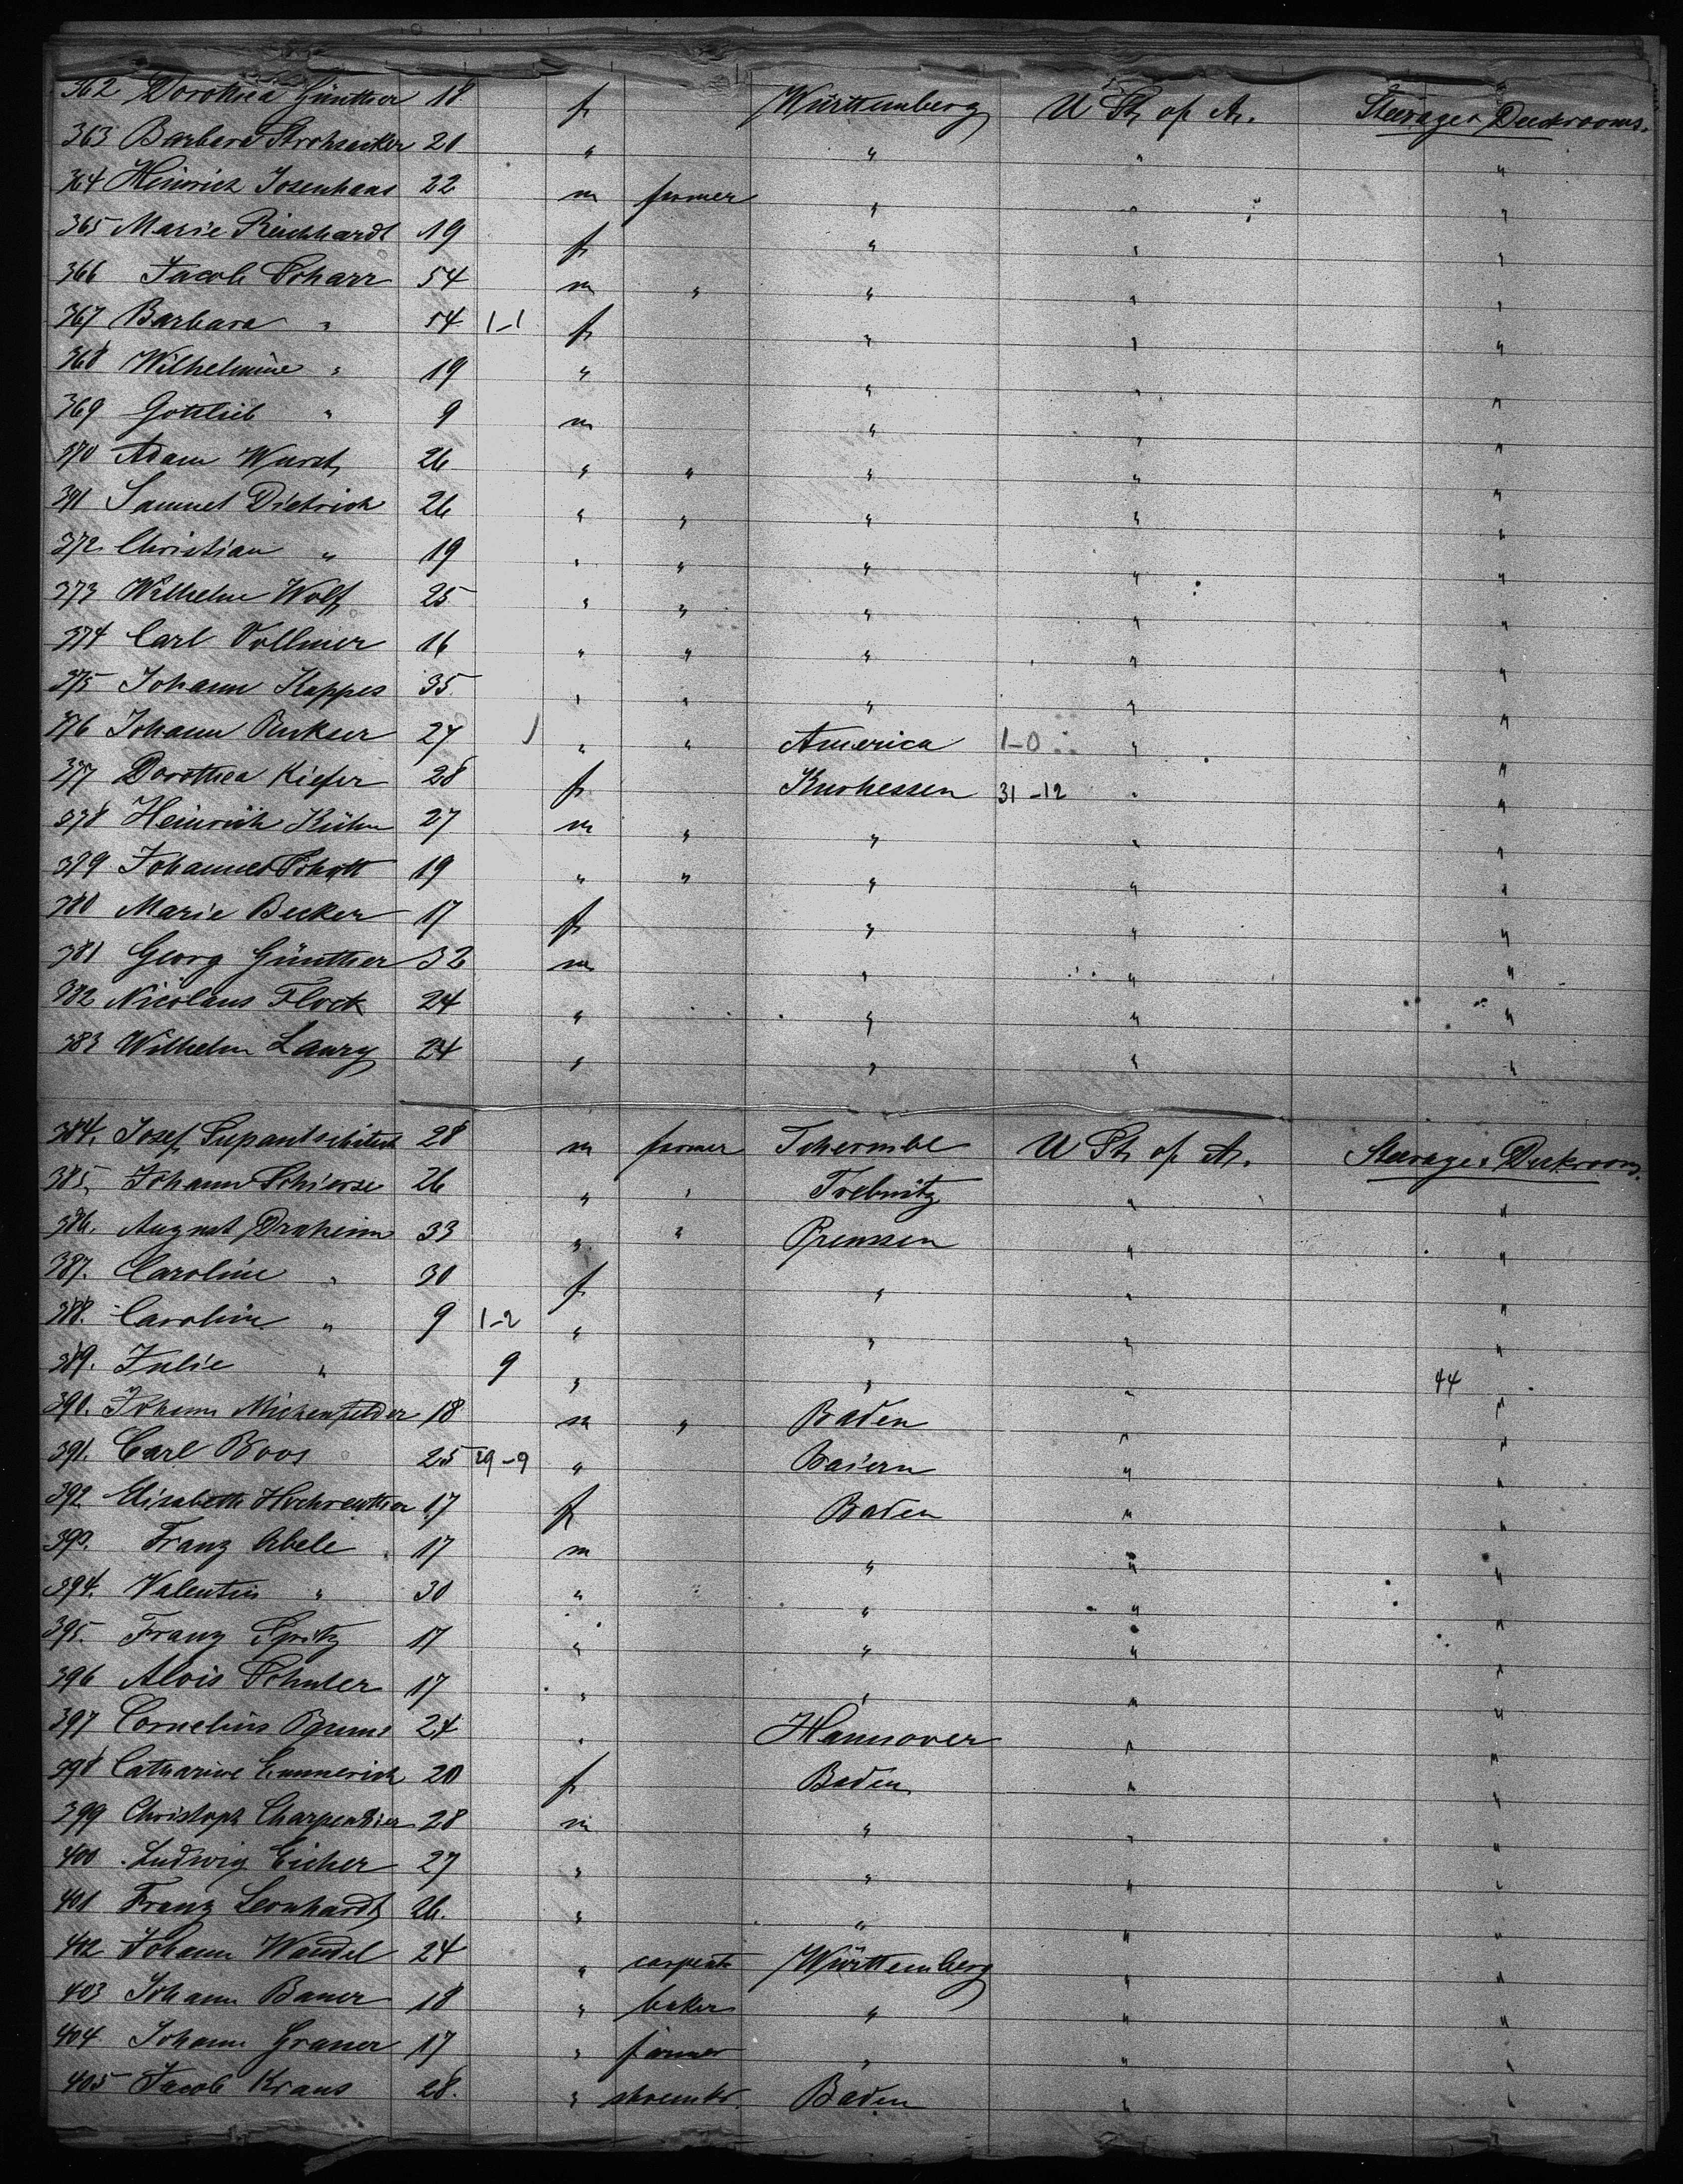 362 Dorothea Günther 18 f Württemberg U St. of A. Steerage & Deckrooms.
363 Barbara Strohsacker 20 " " " "
364 Heinrich Josenhans 22 m farmer " " "
365 Marie Reichhardt 19 f " " "
366 Jacob Scharr 54 m " " " "
367 Barbara " 54 1-1 f " " "
368 Wilhelmine " 19 " " " "
369 Gottlieb " 9 m " " "
370 Adam Wurst 26 " " " " "
371 Samuel Dietrich 26 " " " " "
372 Christian " 19 " " " " "
373 Wilhelm Wolf 25 " " " " "
374 Carl Vollmer 16 " " " " "
375 Johann Kappes 35 " " " " "
376 Johann 27 " " America 1-0 " "
377 Dorothea Kiefer 28 f Kurhessen 31-12 " "
378 Heinrich Kühn 27 m " " " "
379 Johannes Schott 19 " " " " "
380 Marie Becker 17 f " " "
381 Georg Günther 32 m " " "
382 Nicolaus Flock 24 " " " "
383 Wilhelm Laury 24 " " " "
384. Josef 28 m farmer U St. of A. Steerage & Deckrooms.
385. Johann 26 " " Trebnitz " "
386. August Draheim 33 " " Preussen " "
387. Caroline " 30 f " " "
388. Caroline " 9 1-2 " " " "
389. Julie " 9 " " " 44 "
390. Johann Michenfelder 18 m " Baden " "
391. Carl Boos 25 29-9 " Baiern " "
392 Elisabeth Hochreuther 17 f Baden " "
393. Franz Abele 17 m " " "
394. Valentin " 30 " " " "
395. Franz Spitz 17 " " " "
396 Alois Schuler 17 " " " "
397 Cornelius Bruns 24 " Hannover " "
398 Catharine Emmerich 20 f Baden " "
399 Christoph Charpentier 28 m " " "
400 Ludwig Eicher 27 " " " "
401 Franz Leonhardt 26. " " " "
402 Johann Wandel 24 " carpentr Württemberg " "
403 Johann Bauer 18 " baker " " "
404 Johann Graner 17 " farmer " " "
405 Jacob Kraus 28. " shoemkr. Baden " "